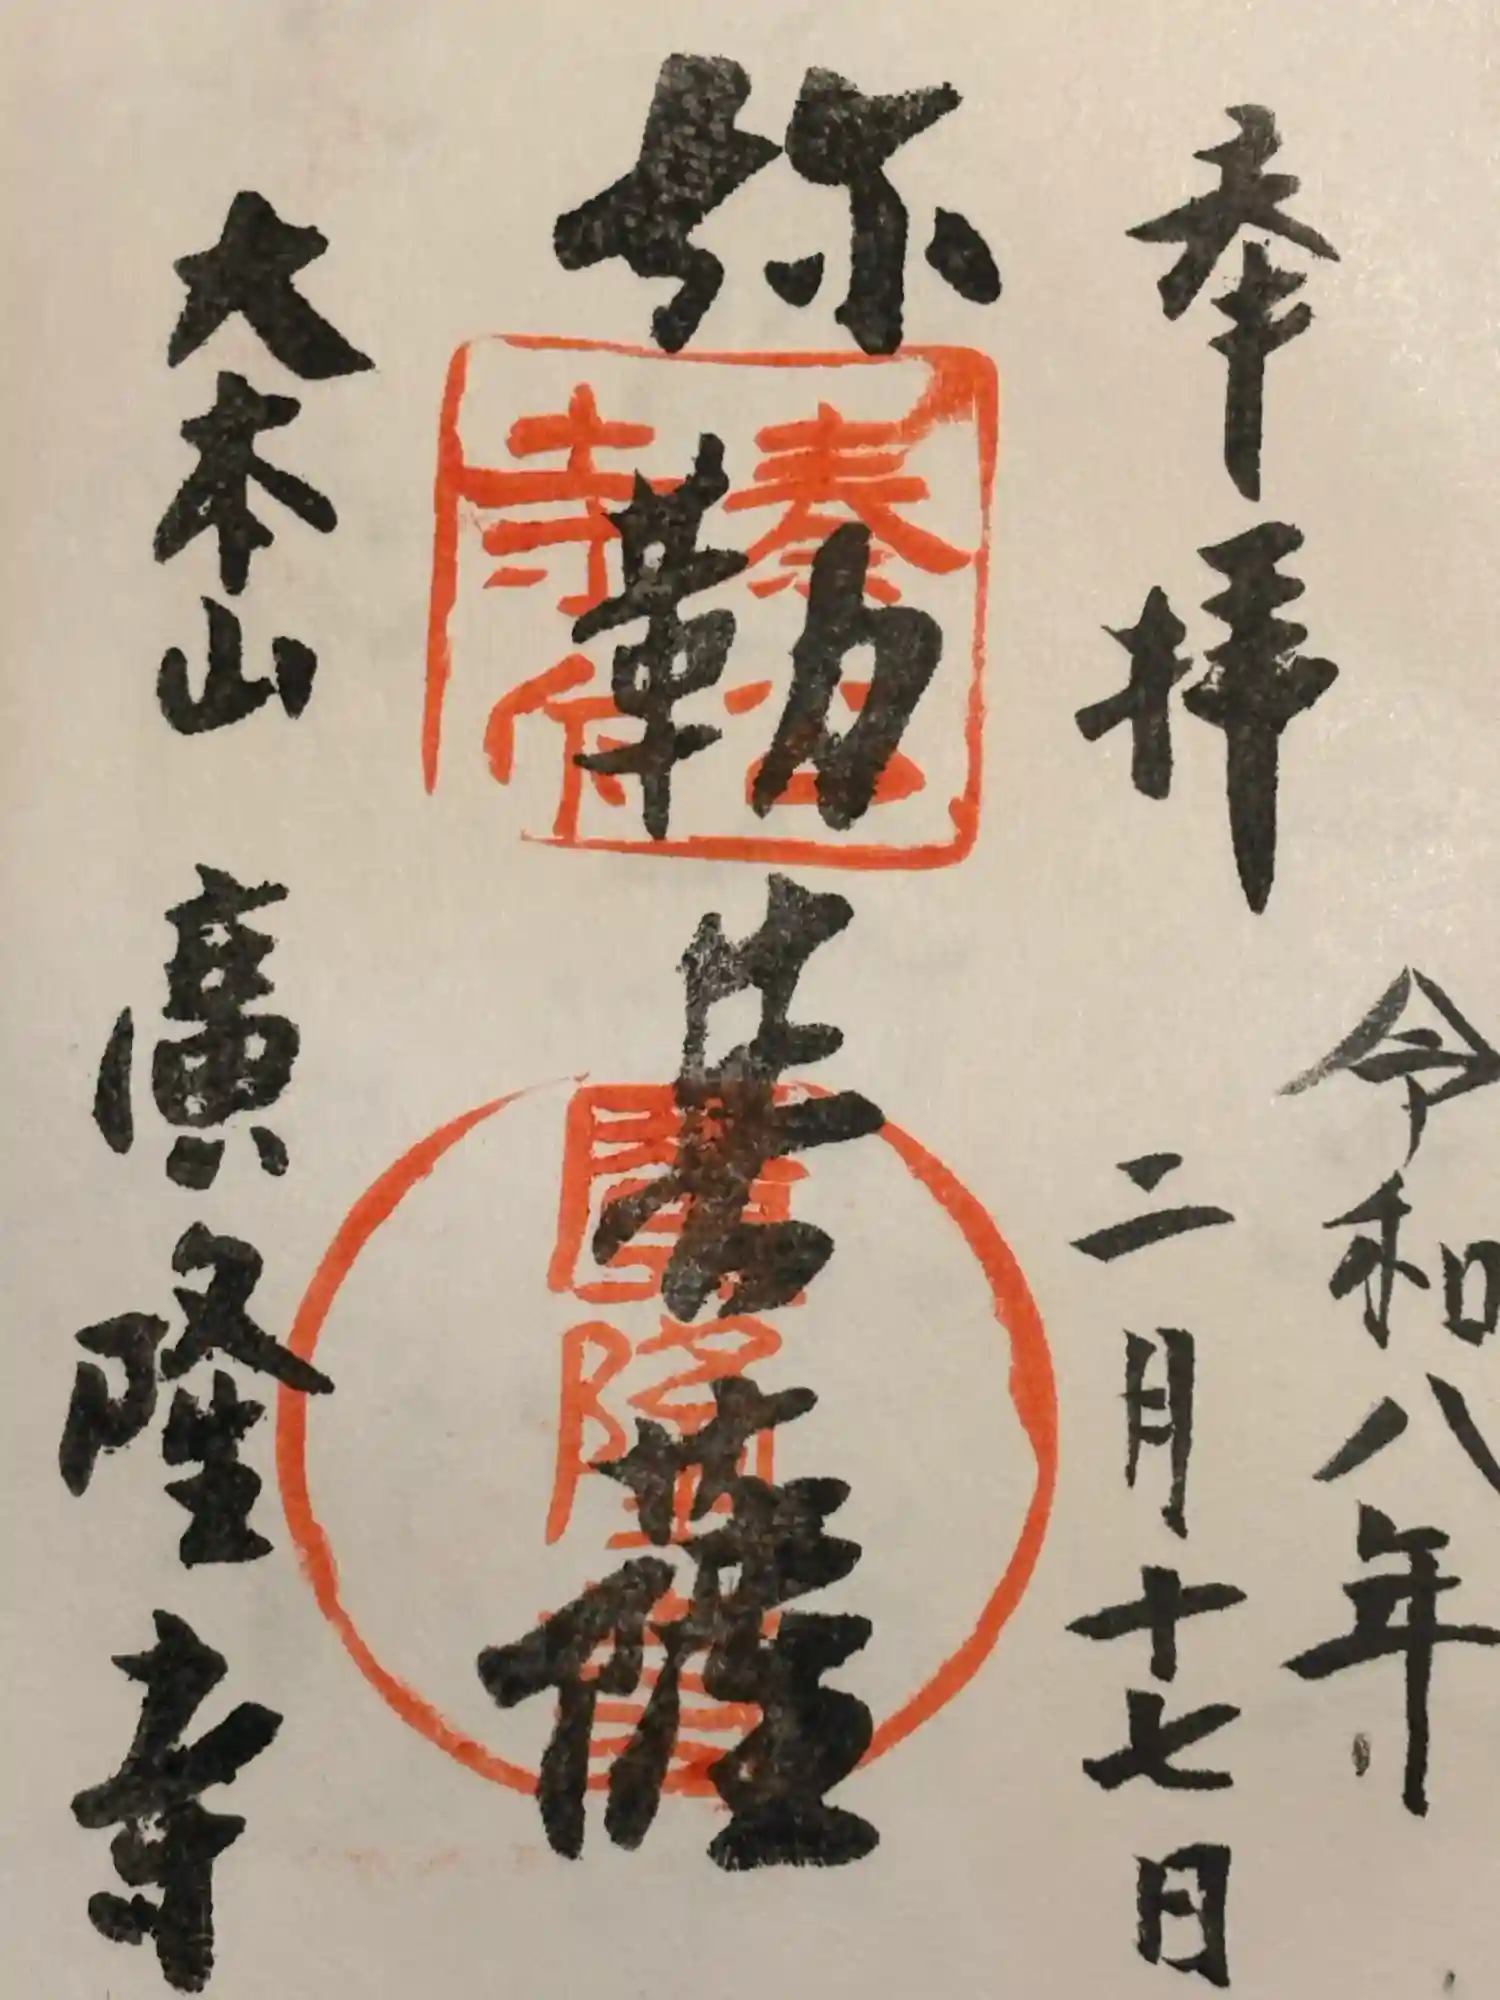 奉拝
令和八年
二月十七日
弥勒菩薩
大本山 廣隆寺
秦公
寺
廣隆寺